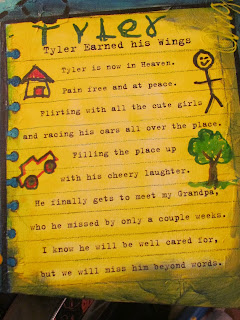 Tyler
Tyler Earned his Wings
Tyler is now in Heaven.
Pain free and at peace.
Flirting with all the cute girls
and racing his cars all over the place.
Filling the place up
with his cheery laughter.
He finally gets to meet my Grandpa,
who he missed by only a couple weeks.
I know he will be well cared for,
but we will miss him beyond words.